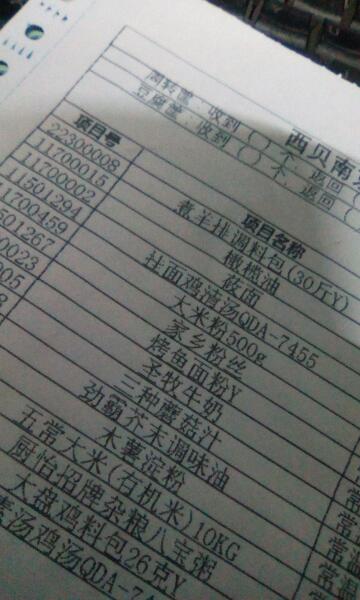 西贝南
周转筐：收到（ ）个，返回（
豆腐筐：收到（ ）木，返回（
项目号 项目名称
22300008 煮羊排调料包(30斤Y)
11700015 橄榄油
11700002 莜面
11501294 挂面鸡清汤QDA-7455
1700459 大米粉500g
501267 家乡粉丝
0023 烤鱼面粉Y
005 圣牧牛奶
8 三种蘑菇汁
劲霸芥末调味油
木薯淀粉
五常大米(有机米)10KG
厨怡招牌杂粮八宝粥
大盘鸡料包26克Y
汤鸡汤QDA-7
常
常
常温
常温